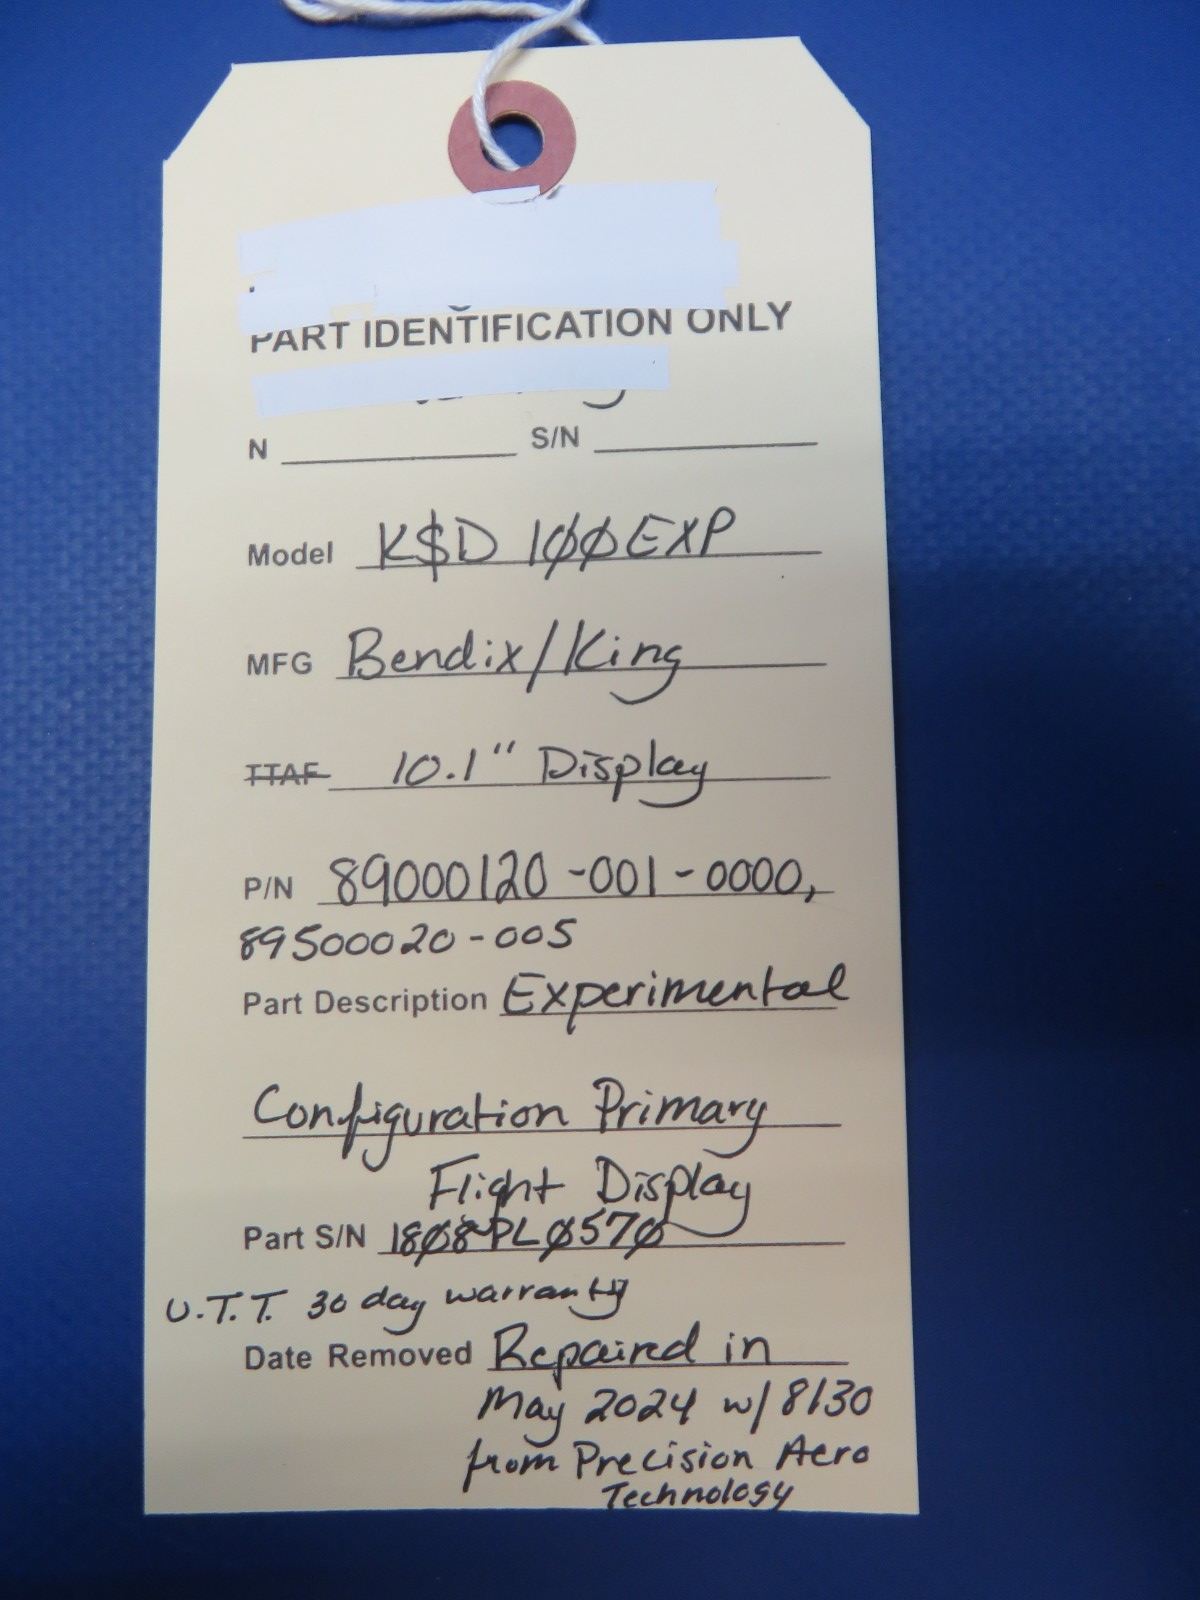 PART IDENTIFICATION ONLY
N S/N
Model K$D 1ØØEXP
MFG Bendix/King
TTAF 10.1" Display
P/N 89000120-001-0000,
89500020-005
Part Description Experimental
Configuration Primary
Flight Display
Part S/N 18Ø8PLØ57Ø
U.T.T. 30 day warranty
Date Removed Repaired in
May 2024 w/ 8130
from Precision Aero
Technology